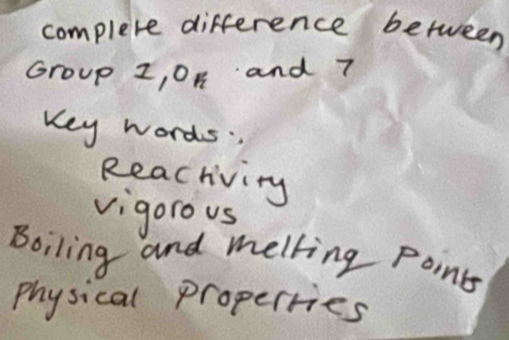 complete difference between
Group 1, 0 and 7
Key words:
Reactivity
vigorous
Boiling and melting points
physical properties